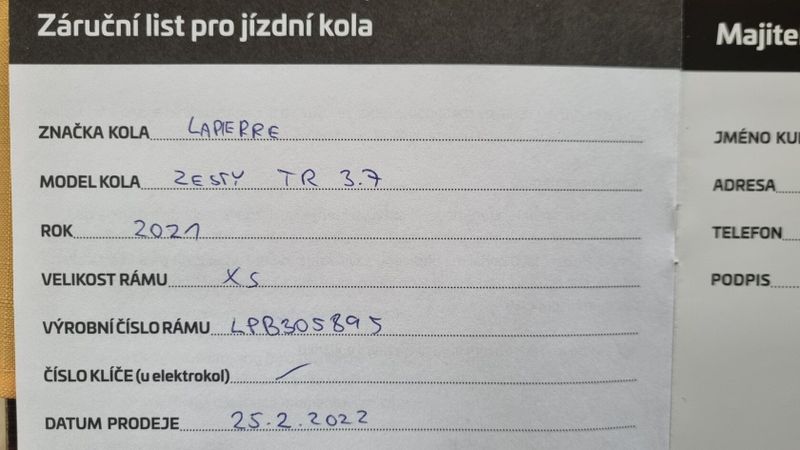 Záruční list pro jízdní kola
ZNAČKA KOLA LAPIERRE
MODEL KOLA ZESTY TR 3.7
ROK 2021
VELIKOST RÁMU XS
VÝROBNÍ ČÍSLO RÁMU LPB305895
ČÍSLO KLÍČE (u elektrokol) /
DATUM PRODEJE 25.2.2022
Majite
JMÉNO KU
ADRESA
TELEFON
PODPIS